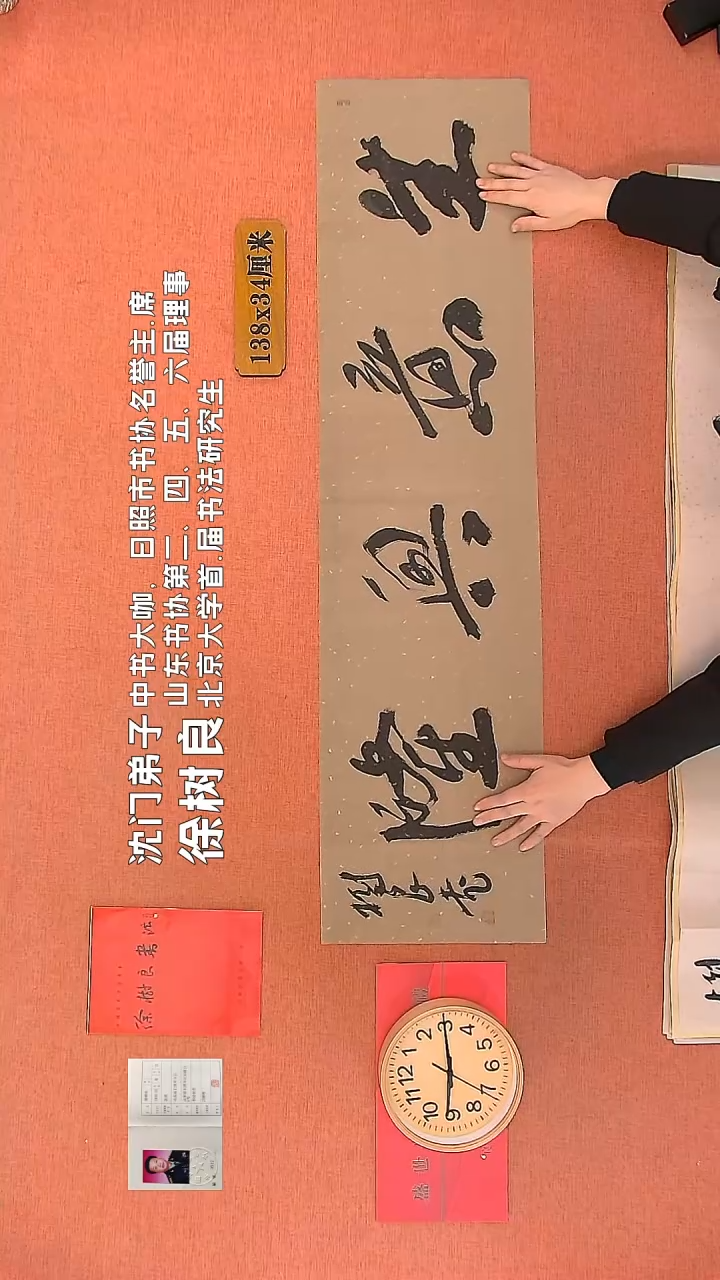 沈门弟子 中书大咖，日照市书协名誉主.席
徐树良 山东书协第二、四、五、六届理事
北京大学首.届书法研究生
138x34厘米
生意興隆
徐樹良書法
盛世
12 1 2 3 4 5 6 7 8 9 10 11